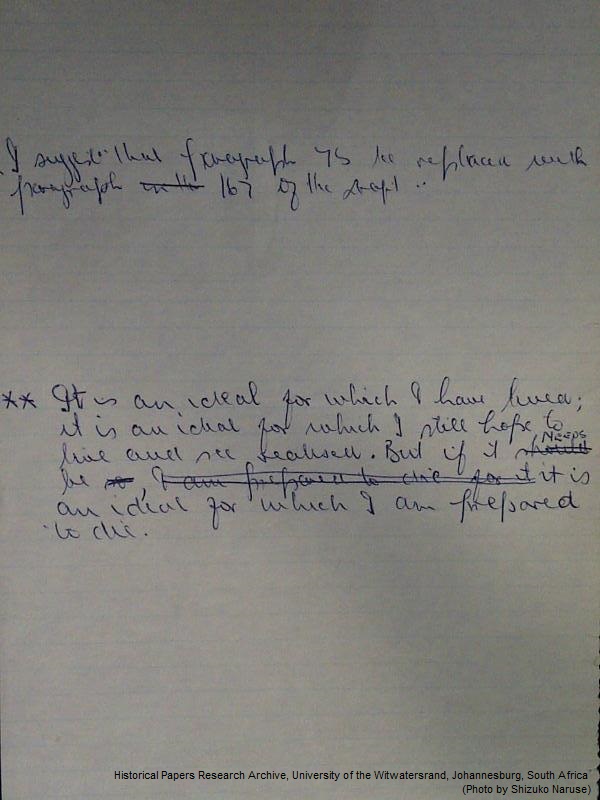 I suggest that paragraph 75 be replaced with
paragraph in the 167 of the draft ..
** It is an ideal for which I have lived;
it is an ideal for which I still hope to
live and see realised. But if it should NEEDS
be so, I am prepared to die for it it is
an ideal for which I am prepared
to die.
Historical Papers Research Archive, University of the Witwatersrand, Johannesburg, South Africa
(Photo by Shizuko Naruse)